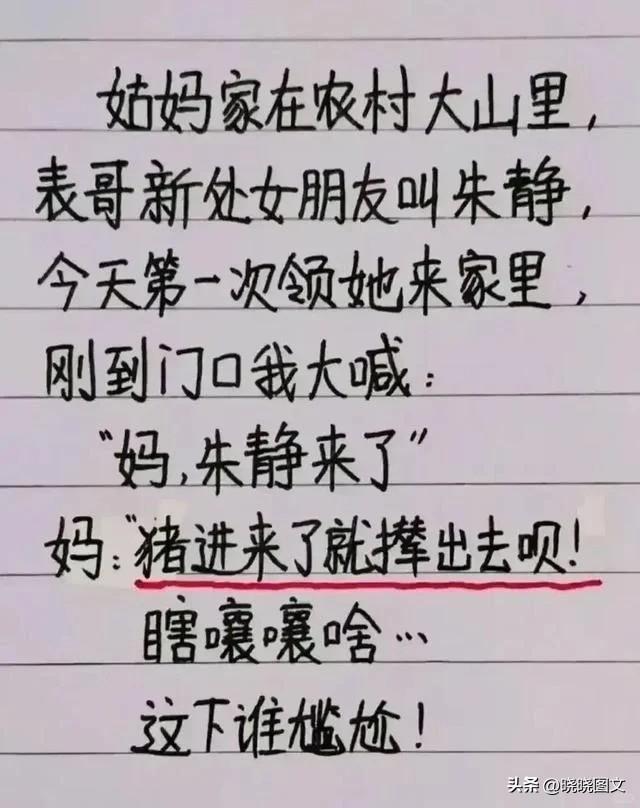 姑妈家在农村大山里，
表哥新处女朋友叫朱静，
今天第一次领她来家里，
刚到门口我大喊：
“妈，朱静来了”
妈：“猪进来了就撵出去呗！
瞎嚷嚷啥…
这下谁尴尬！
头条 @晓晓图文